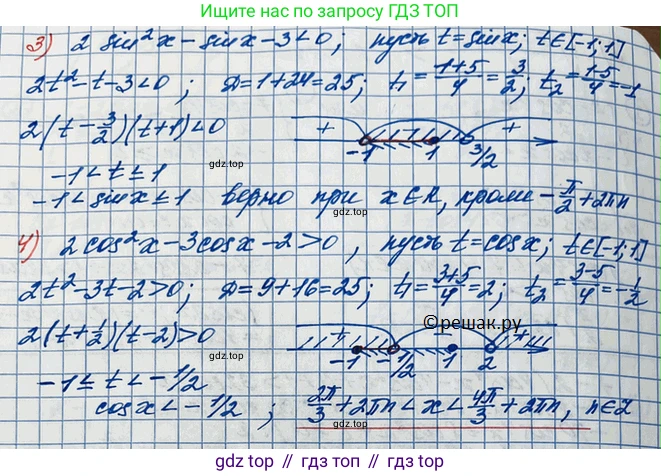 Ищите нас по запросу ГДЗ ТОП
3) 2 sin²x - sinx - 3 < 0; пусть t = sinx; t∈[-1;1]
2t² - t - 3 < 0; D = 1+24 = 25; t₁ = (1+5)/4 = 3/2; t₂ = (1-5)/4 = -1
2(t - 3/2)(t+1) < 0
+ - + -1 1 3/2
-1 < t ≤ 1
-1 < sinx ≤ 1 верно при x∈R, кроме -π/2 + 2πn
4) 2cos²x - 3cosx - 2 > 0, пусть t = cosx; t∈[-1;1]
2t² - 3t - 2 > 0; D = 9+16 = 25; t₁ = (3+5)/4 = 2; t₂ = (3-5)/4 = -1/2
2(t + 1/2)(t - 2) > 0
+ - + -1 -1/2 1 2
©решак.ру
-1 ≤ t < -1/2
cosx < -1/2; 2π/3 + 2πn < x < 4π/3 + 2πn, n∈Z
gdz.top
gdz.top
gdz.top
gdz.top
gdz.top
gdz.top
gdz top // гдз топ // gdz.top